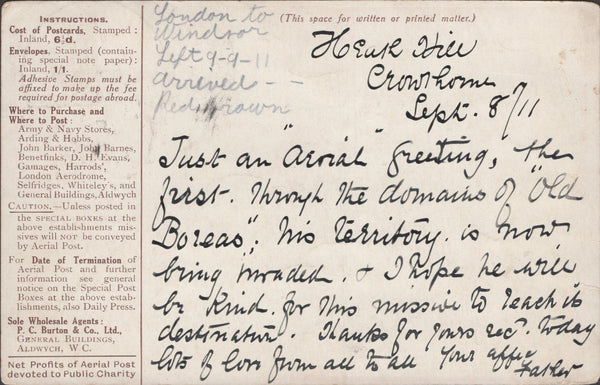 INSTRUCTIONS.
Cost of Postcards, Stamped :
Inland, 6½d.
Envelopes, Stamped (contain-
ing special note paper):
Inland, 1/1.
Adhesive Stamps must be
affixed to make up the fee
required for postage abroad.
Where to Purchase and
Where to Post :
Army & Navy Stores,
Arding & Hobbs,
John Barker, John Barnes,
Benetfinks, D. H. Evans,
Gamages, Harrods',
London Aerodrome,
Selfridges, Whiteley's, and
General Buildings, Aldwych
CAUTION.—Unless posted in
the SPECIAL BOXES at the
above establishments mis-
sives will NOT be conveyed
by Aerial Post.
For Date of Termination of
Aerial Post and further
information see general
notice on the Special Post
Boxes at the above estab-
lishments, also Daily Press.
Sole Wholesale Agents :
P. C. Burton & Co., Ltd.,
GENERAL BUILDINGS,
ALDWYCH, W C.
Net Profits of Aerial Post
devoted to Public Charity
London to
Windsor
Sept 9-9-11
arrived - -
Red Brown
(This space for written or printed matter.)
Heath Hill
Crowthorne
Sept. 8/11
Just an "Aerial" Greeting, the
first. Through the domains of "Old
Boreas", his territory. is now
being invaded. & I hope he will
be kind. for this missive to reach its
destination Thanks for yours recd. today
lots of love from all to all Your affec
Father